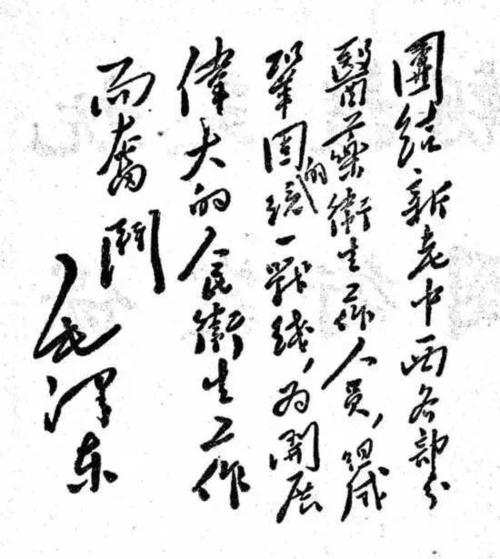 團結新老中西各部分
醫藥衛生工作人員，組成
鞏固的統一戰线，为開展
偉大的人民衛生工作
而奮鬥
毛澤东